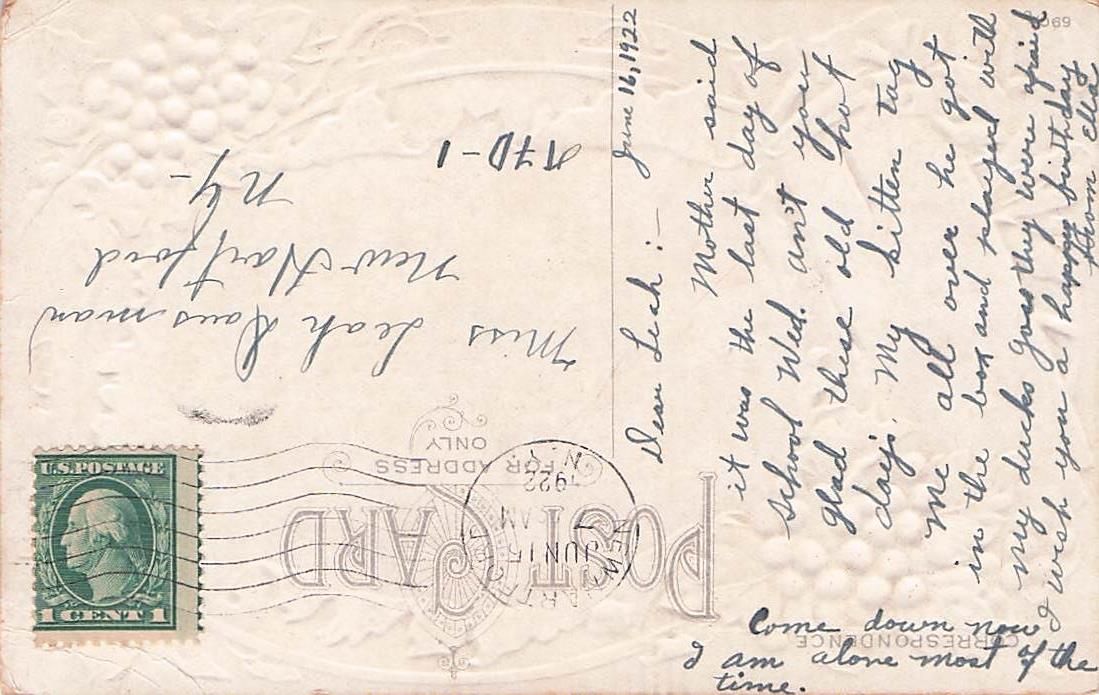 June 16, 1922
Dear Leah :-
Mother said
it was the last day of
school Wed. an't you
glad these old hot
days. My kitten tag
me all over he got
in the box and played with
my ducks goss they were afraid
I wish you a happy birthday
from Ella
Come down now
I am alone most of the
time.
POST CARD
FOR ADDRESS
ONLY
CORRESPONDENCE
NEW HARTFORD
JUN 15
AM
1922
N.Y.
Miss Leah Dousman
New Hartford
N.Y-
RFD-1
U.S. POSTAGE
1 CENT 1